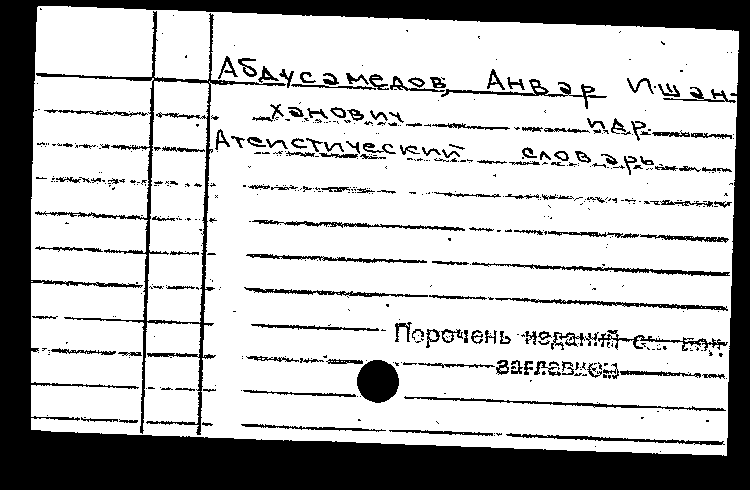 Абдусамедов, Анвар Ишан-
ханович и др.
Атеистический словарь.
Перечень изданий см. под
заглавием